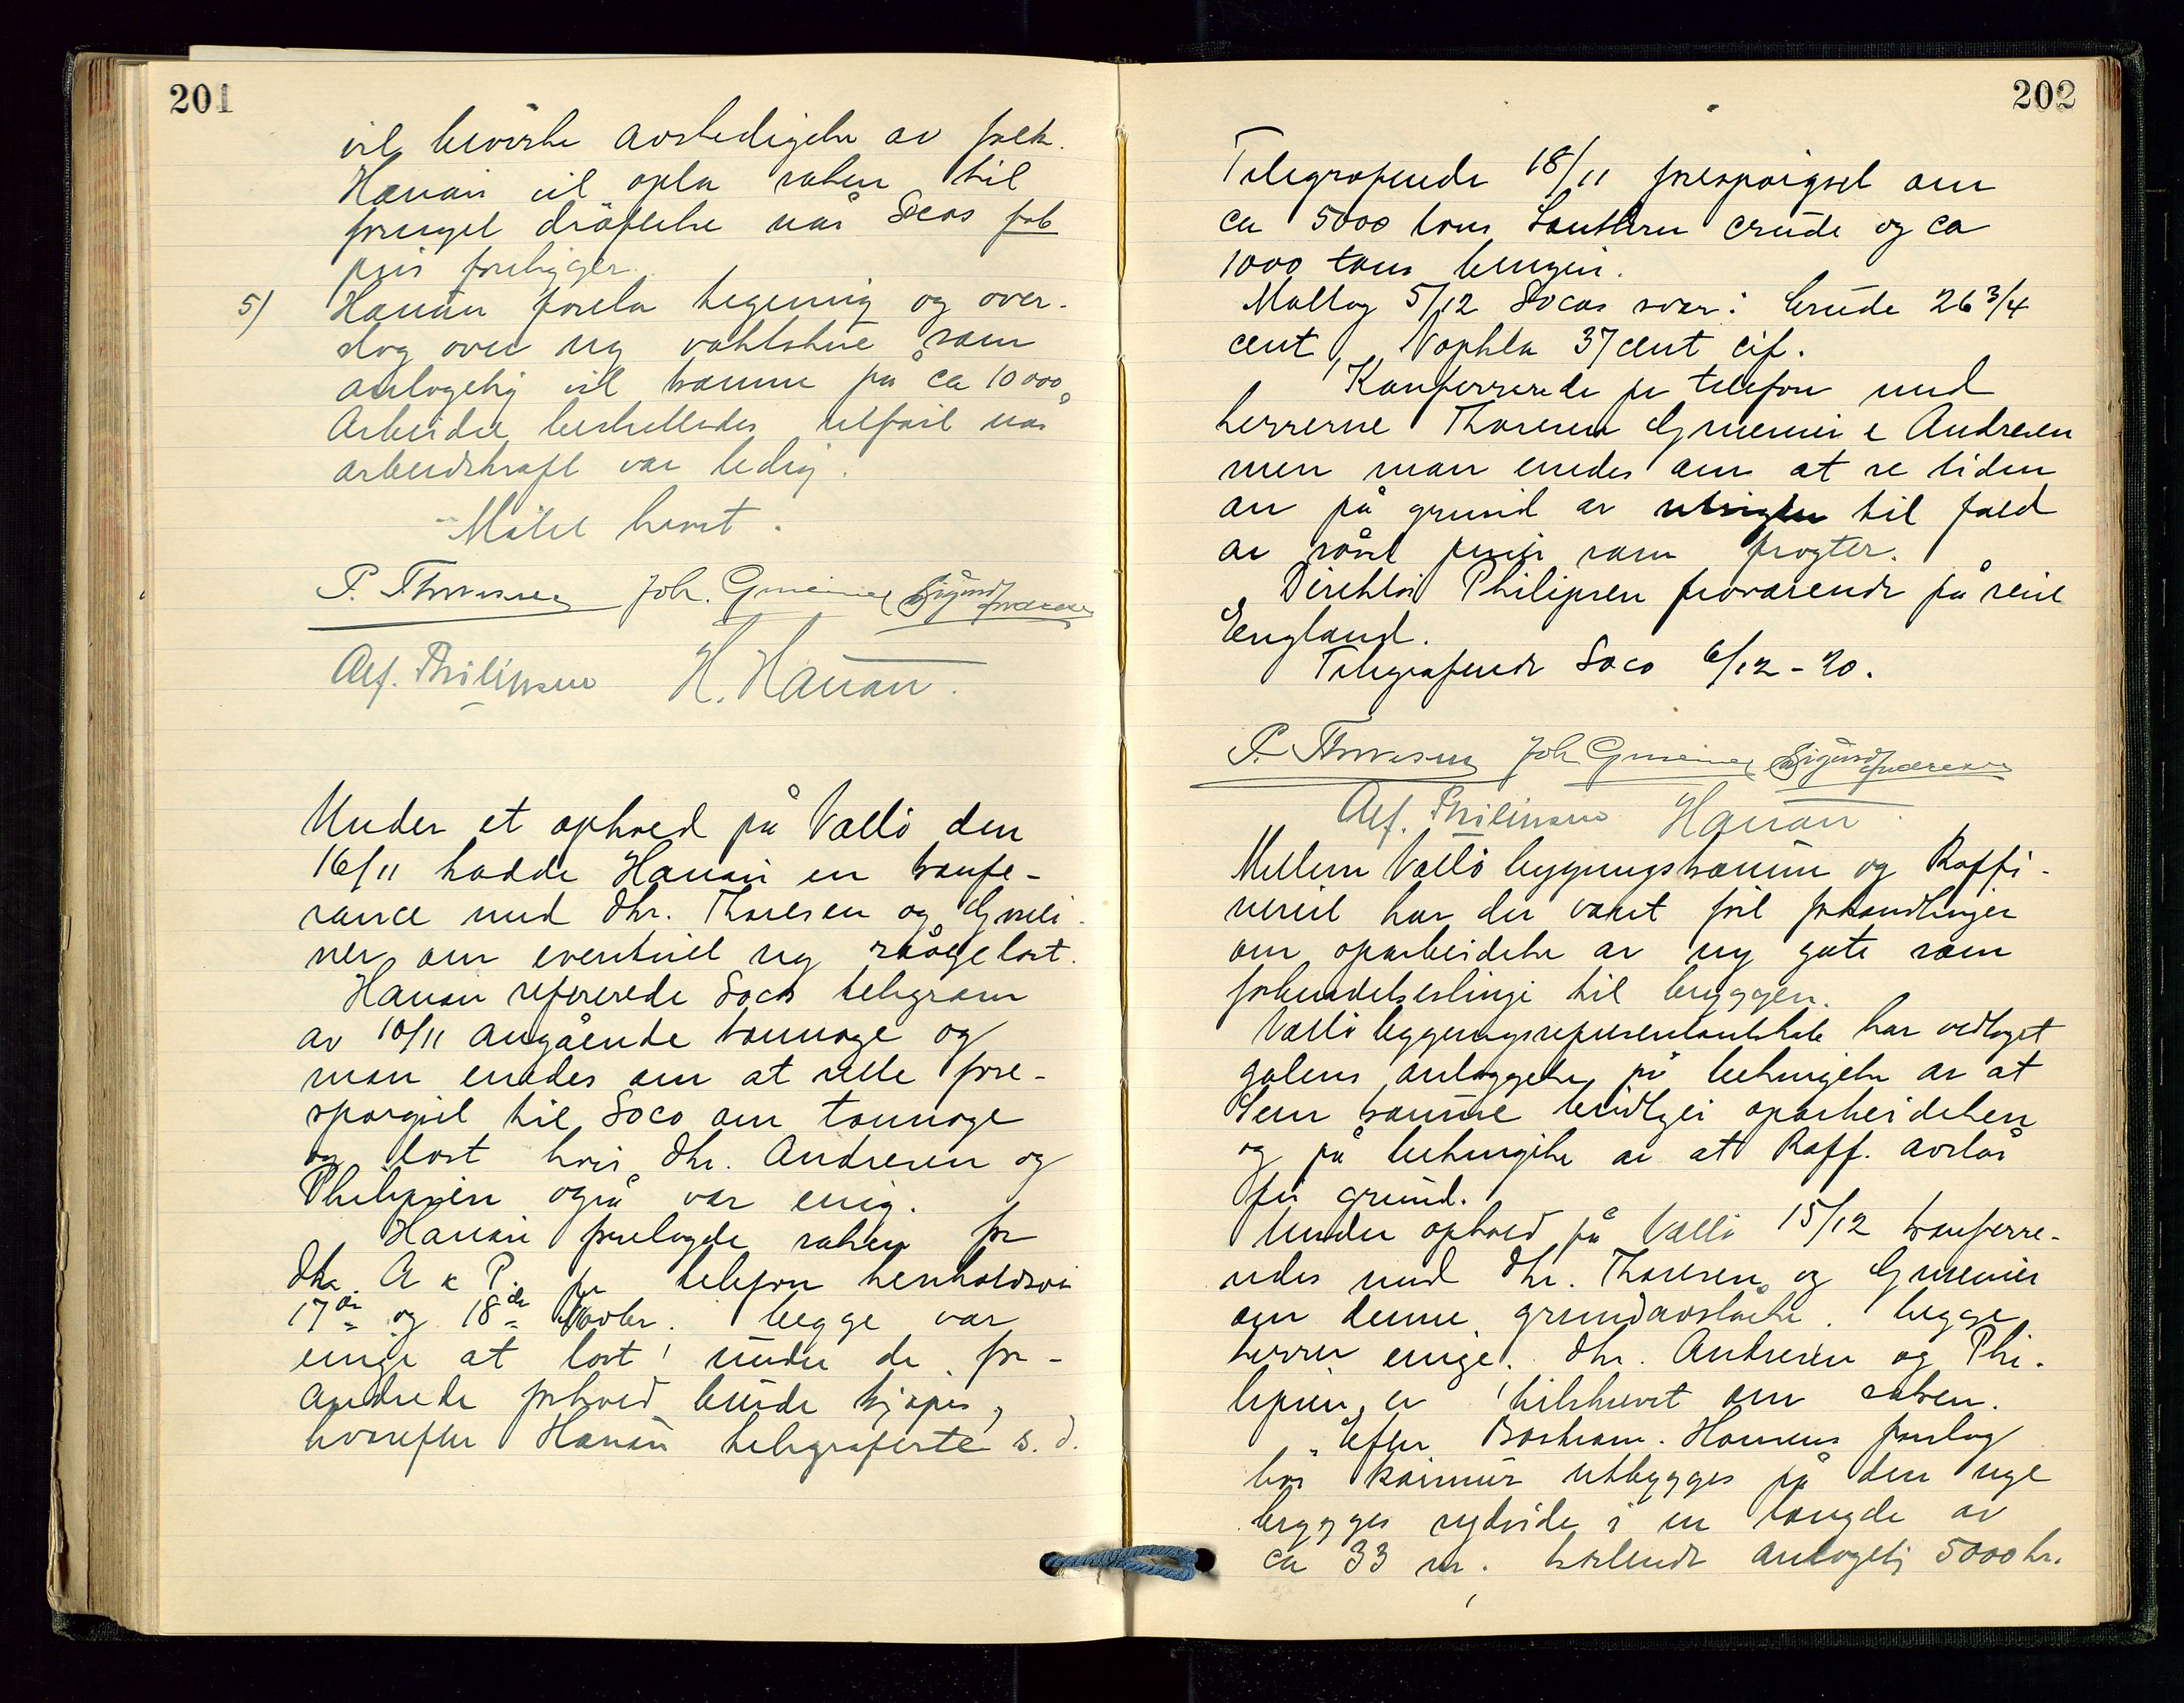 201
vil bevirke avskedigelse av folk.
Hanan vil opta saken til
fornyet drøftelse når Socos fob
pris foreligger.
5) Hanan forela tegning og over-
slag over ny vaktstue som
antagelig vil komme på ca 10000,
Arbeidet besluttedes utført når
arbeidskraft var ledig.
Møtet hevet.
P. Thoresen Joh. Gmeiner Sigurd Andresen
Alf. Philipsen H. Hanan.
Under et ophold på Vallö den
16/11 hadde Hanan en konfe-
rance med Dhr. Thoresen og Gmei-
ner om eventuel ny råoljelast.
Hanan refererede Socos telegram
av 10/11 angående tonnage og
man enedes om at stille fore-
spørgsel til Soco om tonnage
og last hvis Dhr. Andresen og
Philipsen også var enig.
Hanan forelagde saken for
Dhr. A & P. per telefon henholdsvis
17de og 18de Novbr. begge var
enige at last under de for-
andrede forhold burde kjøpes,
hvorefter Hanan telegraferte s. d.
202
Telegraferede 18/11 forespørgsel om
ca 5000 tons Southern crude og ca
1000 tons bensin.
Mottog 5/12 Socos svar: Crude 26 3/4
cent, Naphta 37 cent cif.
Konfererede per telefon med
herrerne Thoresen Gmeiner & Andresen
men man enedes om at se tiden
an på grund av utsigten til fald
av såvel priser som fragter.
Direktør Philipsen fraværende på reise
England.
Telegraferede Soco 6/12-20.
P. Thoresen Joh Gmeiner Sigurd Andresen
Alf. Philipsen Hanan.
Mellem Vallö bygningskommune og Raffi-
neriet har der været ført forhandlinger
om oparbeidelse av ny gate som
forbindelseslinje til bryggen.
Vallö bygningsrepresentantskab har vedtaget
gatens anlæggelse på betingelse av at
Sem kommune besørger oparbeidelsen
og på betingelse av at Raff. avstår
fri grund.
Under ophold på Vallö 15/12 konferre-
redes med Dhr. Thoresen og Gmeiner
om denne grundavståelse. begge
herrer enige. Dhr. Andresen og Phi-
lipsen er tilskrevet om saken.
Efter Hansens forslag
bør kaimur utbygges på den nye
brygges sydside i en længde av
ca 33 m. kostende antagelig 5000 kr.